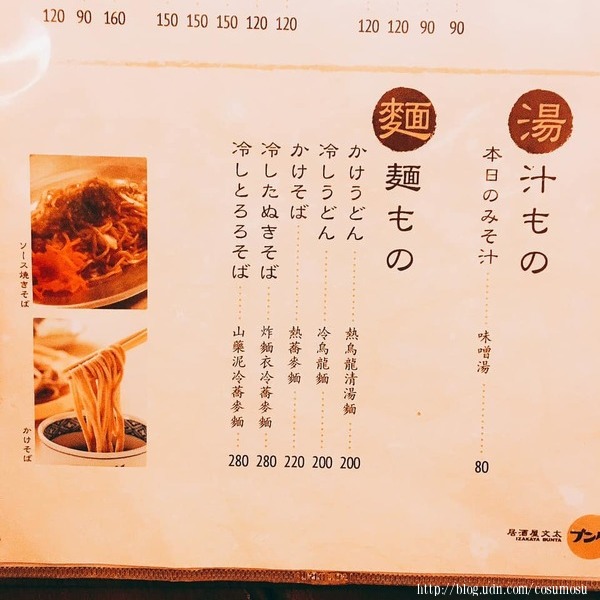 120 90 160 150 150 150 120 120 120 120 90 90
湯 汁もの
本日のみそ汁 味噌湯 80
麵 麺もの
かけうどん 熱烏龍清湯麵 200
冷しうどん 冷烏龍麵 200
かけそば 熱蕎麥麵 220
冷したぬきそば 炸麵衣冷蕎麥麵 280
冷しとろろそば 山藥泥冷蕎麥麵 280
ソース焼きそば
かけそば
居酒屋文太
IZAKAYA BUNTA
http://blog.udn.com/cosumosu